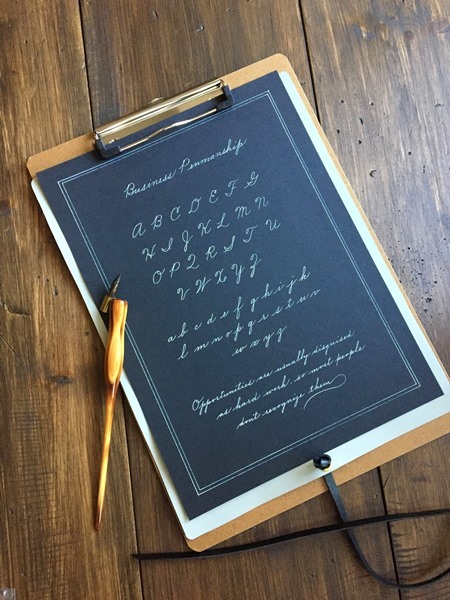 Business Penmanship
A B C D E F G
H I J K L M N
O P Q R S T U
V W X Y Z
a b c d e f g h i j k
l m n o p q r s t u v
w x y z
Opportunities are usually disguised
as hard work, so most people
don't recognize them